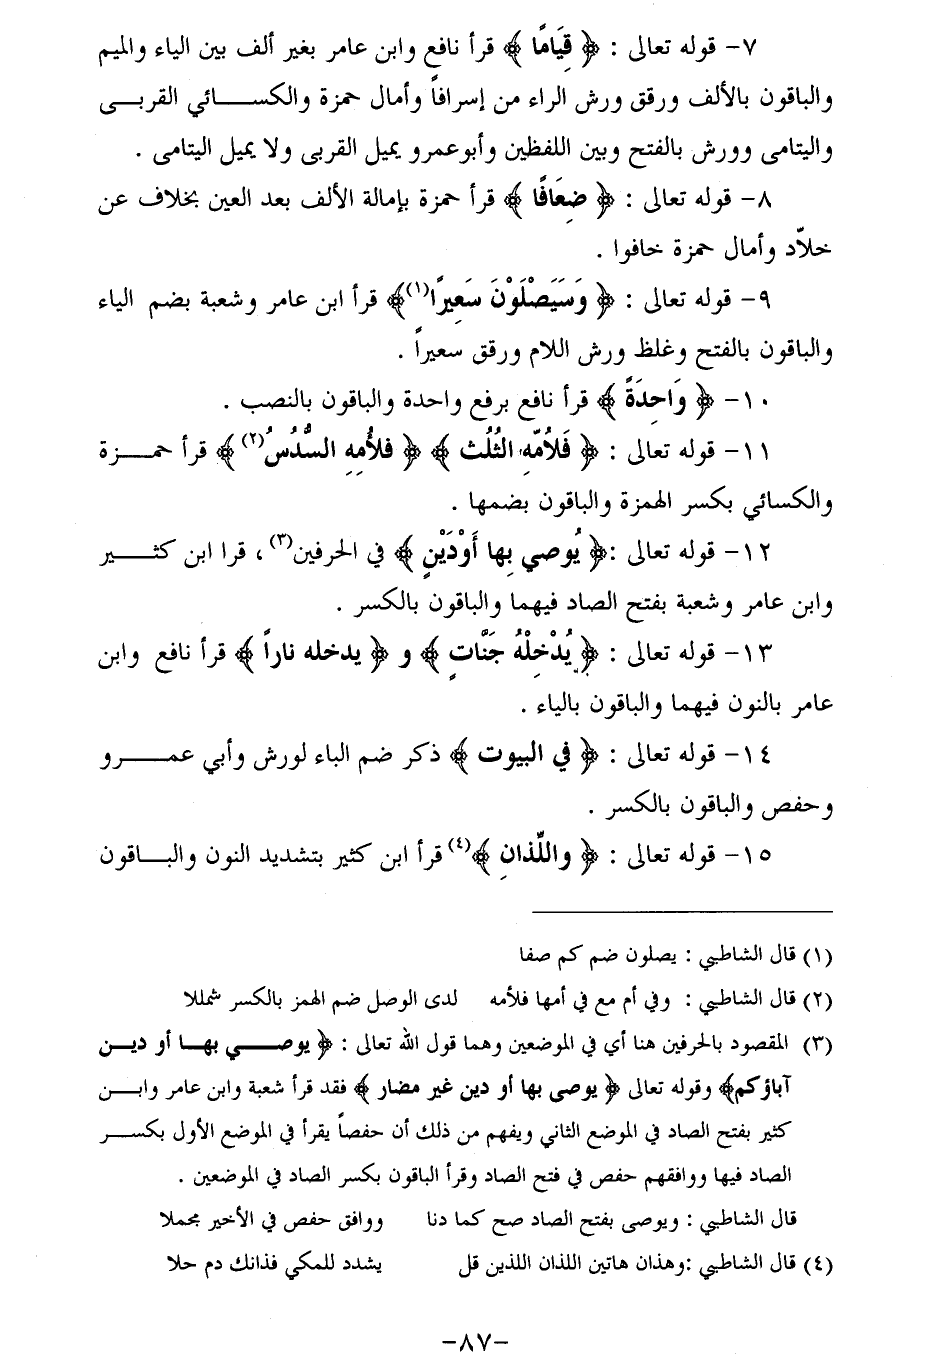 ٧- قوله تعالى : ﴿ قِيَامًا ﴾ قرأ نافع وابن عامر بغير ألف بين الياء والميم
والباقون بالألف ورقق ورش الراء من إسرافاً وأمال حمزة والكسائي القربى
واليتامى وورش بالفتح وبين اللفظين وأبوعمرو يميل القربى ولا يميل اليتامى .
٨- قوله تعالى : ﴿ ضِعَافًا ﴾ قرأ حمزة بإمالة الألف بعد العين بخلاف عن
خلاّد وأمال حمزة خافوا .
٩- قوله تعالى : ﴿ وَسَيَصْلَوْنَ سَعِيرًا(١)﴾ قرأ ابن عامر وشعبة بضم الياء
والباقون بالفتح وغلظ ورش اللام ورقق سعيراً .
١٠- ﴿ وَاحِدَةً ﴾ قرأ نافع برفع واحدة والباقون بالنصب .
١١- قوله تعالى : ﴿ فَلأُمِّهِ الثُلُث ﴾ ﴿ فلأُمِهِ السُّدُسُ(٢)﴾ قرأ حمزة
والكسائي بكسر الهمزة والباقون بضمها .
١٢- قوله تعالى :﴿ يُوصي بِها أَوْدَيْنٍ ﴾ في الحرفين(٣) ، قرا ابن كثير
وابن عامر وشعبة بفتح الصاد فيهما والباقون بالكسر .
١٣- قوله تعالى : ﴿ يُدْخِلْهُ جَنَّاتٍ ﴾ و ﴿ يدخله ناراً ﴾ قرأ نافع وابن
عامر بالنون فيهما والباقون بالياء .
١٤- قوله تعالى : ﴿ في البيوت ﴾ ذكر ضم الباء لورش وأبي عمرو
وحفص والباقون بالكسر .
١٥- قوله تعالى : ﴿ واللّذانِ ﴾(٤) قرأ ابن كثير بتشديد النون والباقون
(١) قال الشاطبي : يصلون ضم كم صفا
(٢) قال الشاطبي : وفي أم مع في أمها فلأمه لدى الوصل ضم الهمز بالكسر شمللا
(٣) المقصود بالحرفين هنا أي في الموضعين وهما قول الله تعالى : ﴿ يوصي بها أو دين
آباؤكم﴾ وقوله تعالى ﴿ يوصى بها أو دين غير مضار ﴾ فقد قرأ شعبة وابن عامر وابن
كثير بفتح الصاد في الموضع الثاني ويفهم من ذلك أن حفصاً يقرأ في الموضع الأول بكسر
الصاد فيها ووافقهم حفص في فتح الصاد وقرأ الباقون بكسر الصاد في الموضعين .
قال الشاطبي : ويوصى بفتح الصاد صح كما دنا ووافق حفص في الأخير مجملا
(٤) قال الشاطبي :وهذان هاتين اللذان اللذين قل يشدد للمكي فذانك دم حلا
-٨٧-